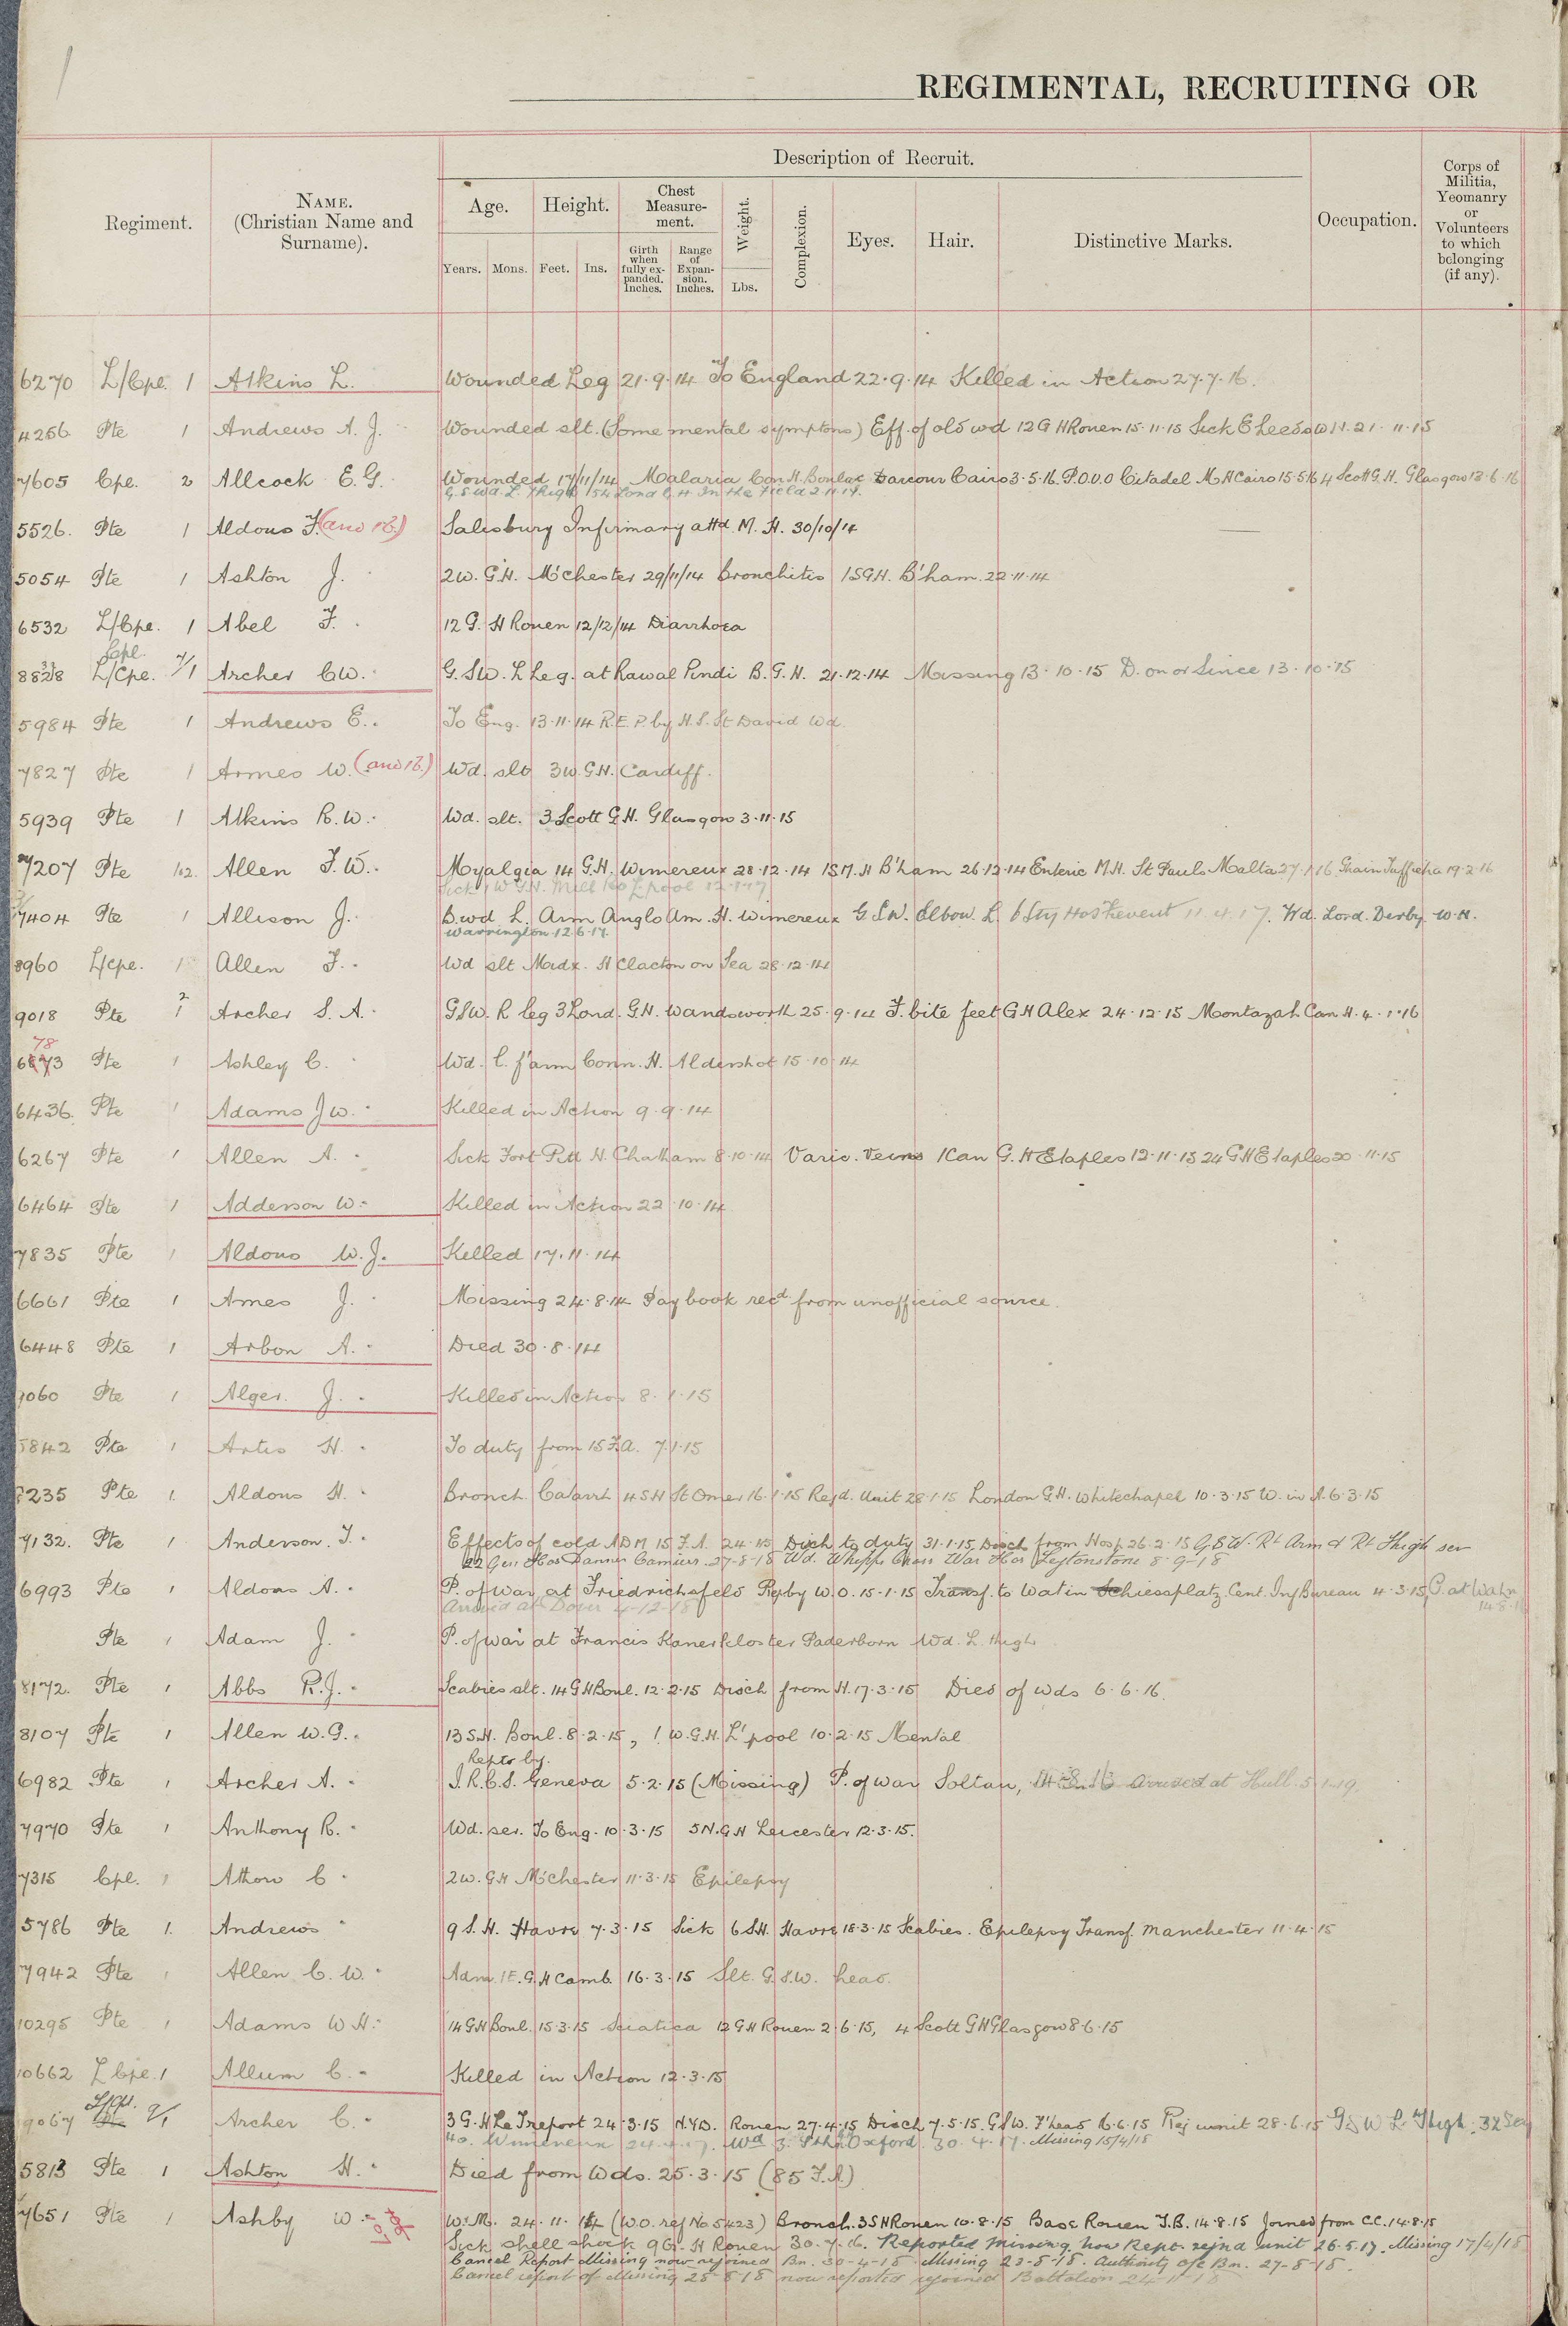 REGIMENTAL, RECRUITING OR
Description of Recruit.
Regiment.
NAME.
(Christian Name and
Surname).
Age.
Height.
Chest
Measure-
ment.
Weight.
Complexion.
Eyes.
Hair.
Distinctive Marks.
Occupation.
Corps of
Militia,
Yeomanry
or
Volunteers
to which
belonging
(if any).
Years.
Mons.
Feet.
Ins.
Girth
when
fully ex-
panded.
Inches.
Range
of
Expan-
sion.
Inches.
Lbs.
6270 L/Cpl. 1 Atkins L. Wounded Leg 21.9.14 To England 22.9.14 Killed in Action 27.7.16.
4256 Pte 1 Andrews A. J. Wounded slt. (Some mental symptons) Eff. of old wd 12 G H Rouen 15.11.15 Sick E Leeds W H. 21.11.15
7605 Cpl. 2 Allcock E. G. Wounded 17/11/14 Malaria Con H. Boulac Daucour Cairo 3.5.16. P.O.V.O Citadel M H Cairo 15.5.16 4 Scott G. H. Glasgow 13.6.16
G.S.Wd. L. Thigh 1st Lond C. H. In the Field 2.11.17.
5526. Pte 1 Aldous F. (and 16.) Salisbury Infirmary attd. M. H. 30/10/14
5054 Pte 1 Ashton J. 2W. G.H. M'chester 29/11/14 Bronchitis 1 S G H. B'ham. 22.11.14
6532 L/Cpl. 1 Abel F. 12 G. H Rouen 12/12/14 Diarrhoea
Cpl.
8828 L/Cpl. 7/1 Archer C W. G. S W. L Leg. at Rawal Pindi B. G. H. 21.12.14 Missing 13.10.15 D. on or Since 13.10.15
5984 Pte 1 Andrews E. To Eng. 13.11.14 R.E.P. by H.S. St David Wd.
7827 Pte 1 Armes W. (and 16.) Wd. slt 3W. G.H. Cardiff.
5939 Pte 1 Atkins R. W. Wd. slt. 3 Scott G H. Glasgow 3.11.15
7207 Pte 1.2. Allen F. W. Myalgia 14 G.H. Wimereux 28.12.14 1 S M. H B'ham 26.12.14 Enteric M.H. St Pauls Malta 27.1.16 Ghain Tuffieha 19.2.16
Sick 1 W G.H. Mill Rd L'pool 12.1.17
7404 Pte 1 Allison J. B. wd L. Arm Anglo Am. H. Wimereux G S W. Elbow L. 6 Sty Hos Trevent 11.4.17. Wd. Lord. Derby. W.H.
Warrington 12.6.17.
8960 L/Cpl. 1 Allen F. Wd slt Midx. H Clacton on Sea 28.12.14
9018 Pte 2/1 Archer S. A. G S W. R leg 3 Lond. G.H. Wandsworth 25.9.14 F. bite feet G H Alex 24.12.15 Montazah Con H. 4.1.16
78
6673 Pte 1 Ashley C. Wd. l. f'arm Conn. H. Aldershot 15.10.14
6436. Pte 1 Adams J W. Killed in Action 9.9.14
6267 Pte 1 Allen A. Sick Fort Pitt H. Chatham 8.10.14 Varic. Veins 1 Can G. H Etaples 12.11.15 24 G H Etaples 20.11.15
6464 Pte 1 Adderson W. Killed in Action 22.10.14
7835 Pte 1 Aldous W. J. Killed 17.11.14
6661 Pte 1 Ames J. Missing 24.8.14 Pay book recd from unofficial source.
6448 Pte 1 Arbon A. Died 30.8.14
7060 Pte 1 Alger. J. Killed in Action 8.1.15
5842 Pte 1 Artis H. To duty from 15 F.A. 7.1.15
8235 Pte 1. Aldous H. Bronch. Catarrh 4 S H St Omer 16.1.15 Rejd. Unit 28.1.15 London G.H. Whitechapel 10.3.15 W. in A. 6.3.15
7132. Pte 1 Anderson. J. Effects of cold ADM 15 F.A. 24.1.15 Disch to duty 31.1.15. Disch from Hosp 26.2.15 G S W. Rt Arm & Rt Thigh sev
22 Gen Hos Dannes Camiers. 27-8-18 Wd. Whipps Cross War Hos Leytonstone 8-9-18
6993 Pte 1 Aldous A. P. of War at Friedrichsfeld Rep by W.O. 15.1.15 Transf. to Watin Schiessplatz. Cent. Inf Bureau 4.3.15, P. at Wahn
Arrived at Dover 4-12-18
Pte 1 Adam J. P. of War at Francis Kanerkloster Paderborn Wd. L. thigh
8172. Pte 1 Abbs R. J. Scabies slt. 14 G H Boul. 12.2.15 Disch from H. 17.3.15 Died of wds 6.6.16.
8107 Pte 1 Allen W. G. 13 S.H. Boul. 8.2.15, 1. W. G. H. L'pool 10.2.15 Mental
Reptd by.
6982 Pte 1 Archer A. I.R.C.S. Geneva 5.2.15 (Missing) P. of War Soltau, arrived at Hull 5.1.19.
7970 Pte 1 Anthony R. Wd. ser. To Eng. 10.3.15 5 N. G H Leicester 12.3.15.
7315 Cpl. 1 Athow C 2W. G H M'chester 11.3.15 Epilepsy
5786 Pte 1. Andrews 9 S. H. Havre 7.3.15 Sick 6 S H. Havre 18.3.15 Scabies. Epilepsy Transf. Manchester 11.4.15
7942 Pte 1 Allen C. W. Adm. 1 E. G H Camb. 16.3.15 Slt. G.S.W. head.
10295 Pte 1 Adams W H. 14 G H Boul. 15.3.15 Sciatica 12 G H Rouen 2.6.15, 4 Scott G H Glasgow 8.6.15
10662 L Cpl. 1 Allum C. Killed in Action 12.3.15
L/Cpl.
9067 Pte 9/1 Archer C. 3 G. H Le Treport 24.3.15 N.Y.D. Rouen 27.4.15 Disch 7.5.15 G S W. F'head 16.6.15 Rej unit 28.6.15 G S W L. Thigh. 32 Sty
Ho. Wimereux 24.4.17. Wd 3. Sthn Oxford 30.4.17. Missing 15/4/18
5813 Pte 1 Ashton H. Died from Wds. 25.3.15 (85 F.A)
7651 Pte 1 Ashby W W. M. 24.11.14 (W.O. ref No 5423) Bronch. 3 S H Rouen 10.8.15 Base Rouen T.B. 14.8.15 Joined from C.C. 14.8.15
Sick shell shock 9 G. H Rouen 30.7.16. Reported Missing, now Rept. rejnd unit 26.5.17. Missing 17/4/18
Cancel Report Missing now rejoined Bn. 30-4-18 Missing 23-8-18. Authority o/c Bn. 27-8-18.
Cancel report of Missing 23-8-18 now reported rejoined Battalion